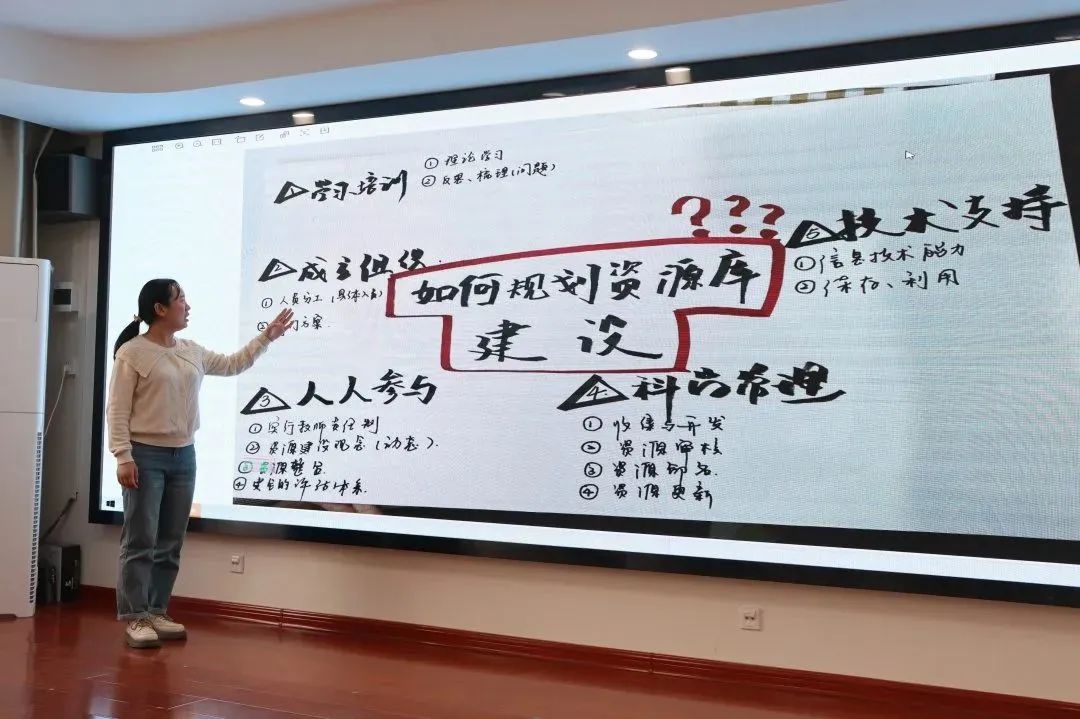 1 学习培训
① 理论学习
② 反思、梳理(问题)
???
如何规划资源库
建设
2 成立组织.
① 人员分工(具体人员)
② 方案.
3 人人参与
① 实行教师责任制
② 资源建设观念(动态).
③ 资源整合.
④ 的评估体系.
4. 科学管理
① 收集与开发
② 资源审核
③ 资源命名.
④ 资源更新
5 技术支持
① 信息技术能力
② 保存、利用